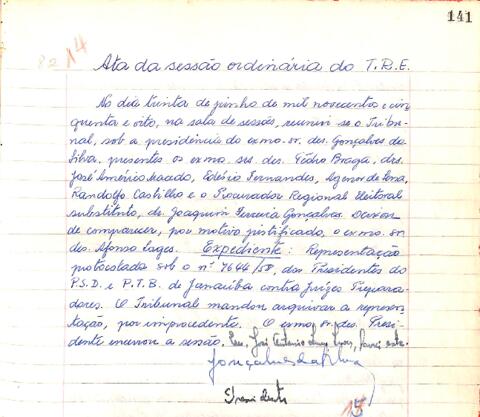 141
82 14
Ata da sessão ordinária do T.R.E.
No dia trinta de junho de mil novecentos e cin
quenta e oito, na sala de sessões, reuniu-se o Tribu-
nal, sob a presidência do exmo. sr. des. Gonçalves da
Silva, presentes os exmo. srs. des. Pedro Braga, drs.
José Américo Macedo, Edésio Fernandes, Agenor de Sena,
Randolfo Castilho e o Procurador Regional Eleitoral
substituto, dr. Joaquim Ferreira Gonçalves. Deixou
de comparecer, por motivo justificado, o exmo. sr.
des. Afonso Lages. Expediente: Representação
protocolada sob o nº 7644/58, dos Presidentes do
P.S.D. e P.T.B. de Janaúba contra Juízes Prepara-
dores. O Tribunal mandou arquivar a represen-
tação, por improcedente. O exmo. sr. des. Presi-
dente encerrou a sessão. Eu, José Antonio lavrei esta.
Gonçalves da Silva
Presidente
15